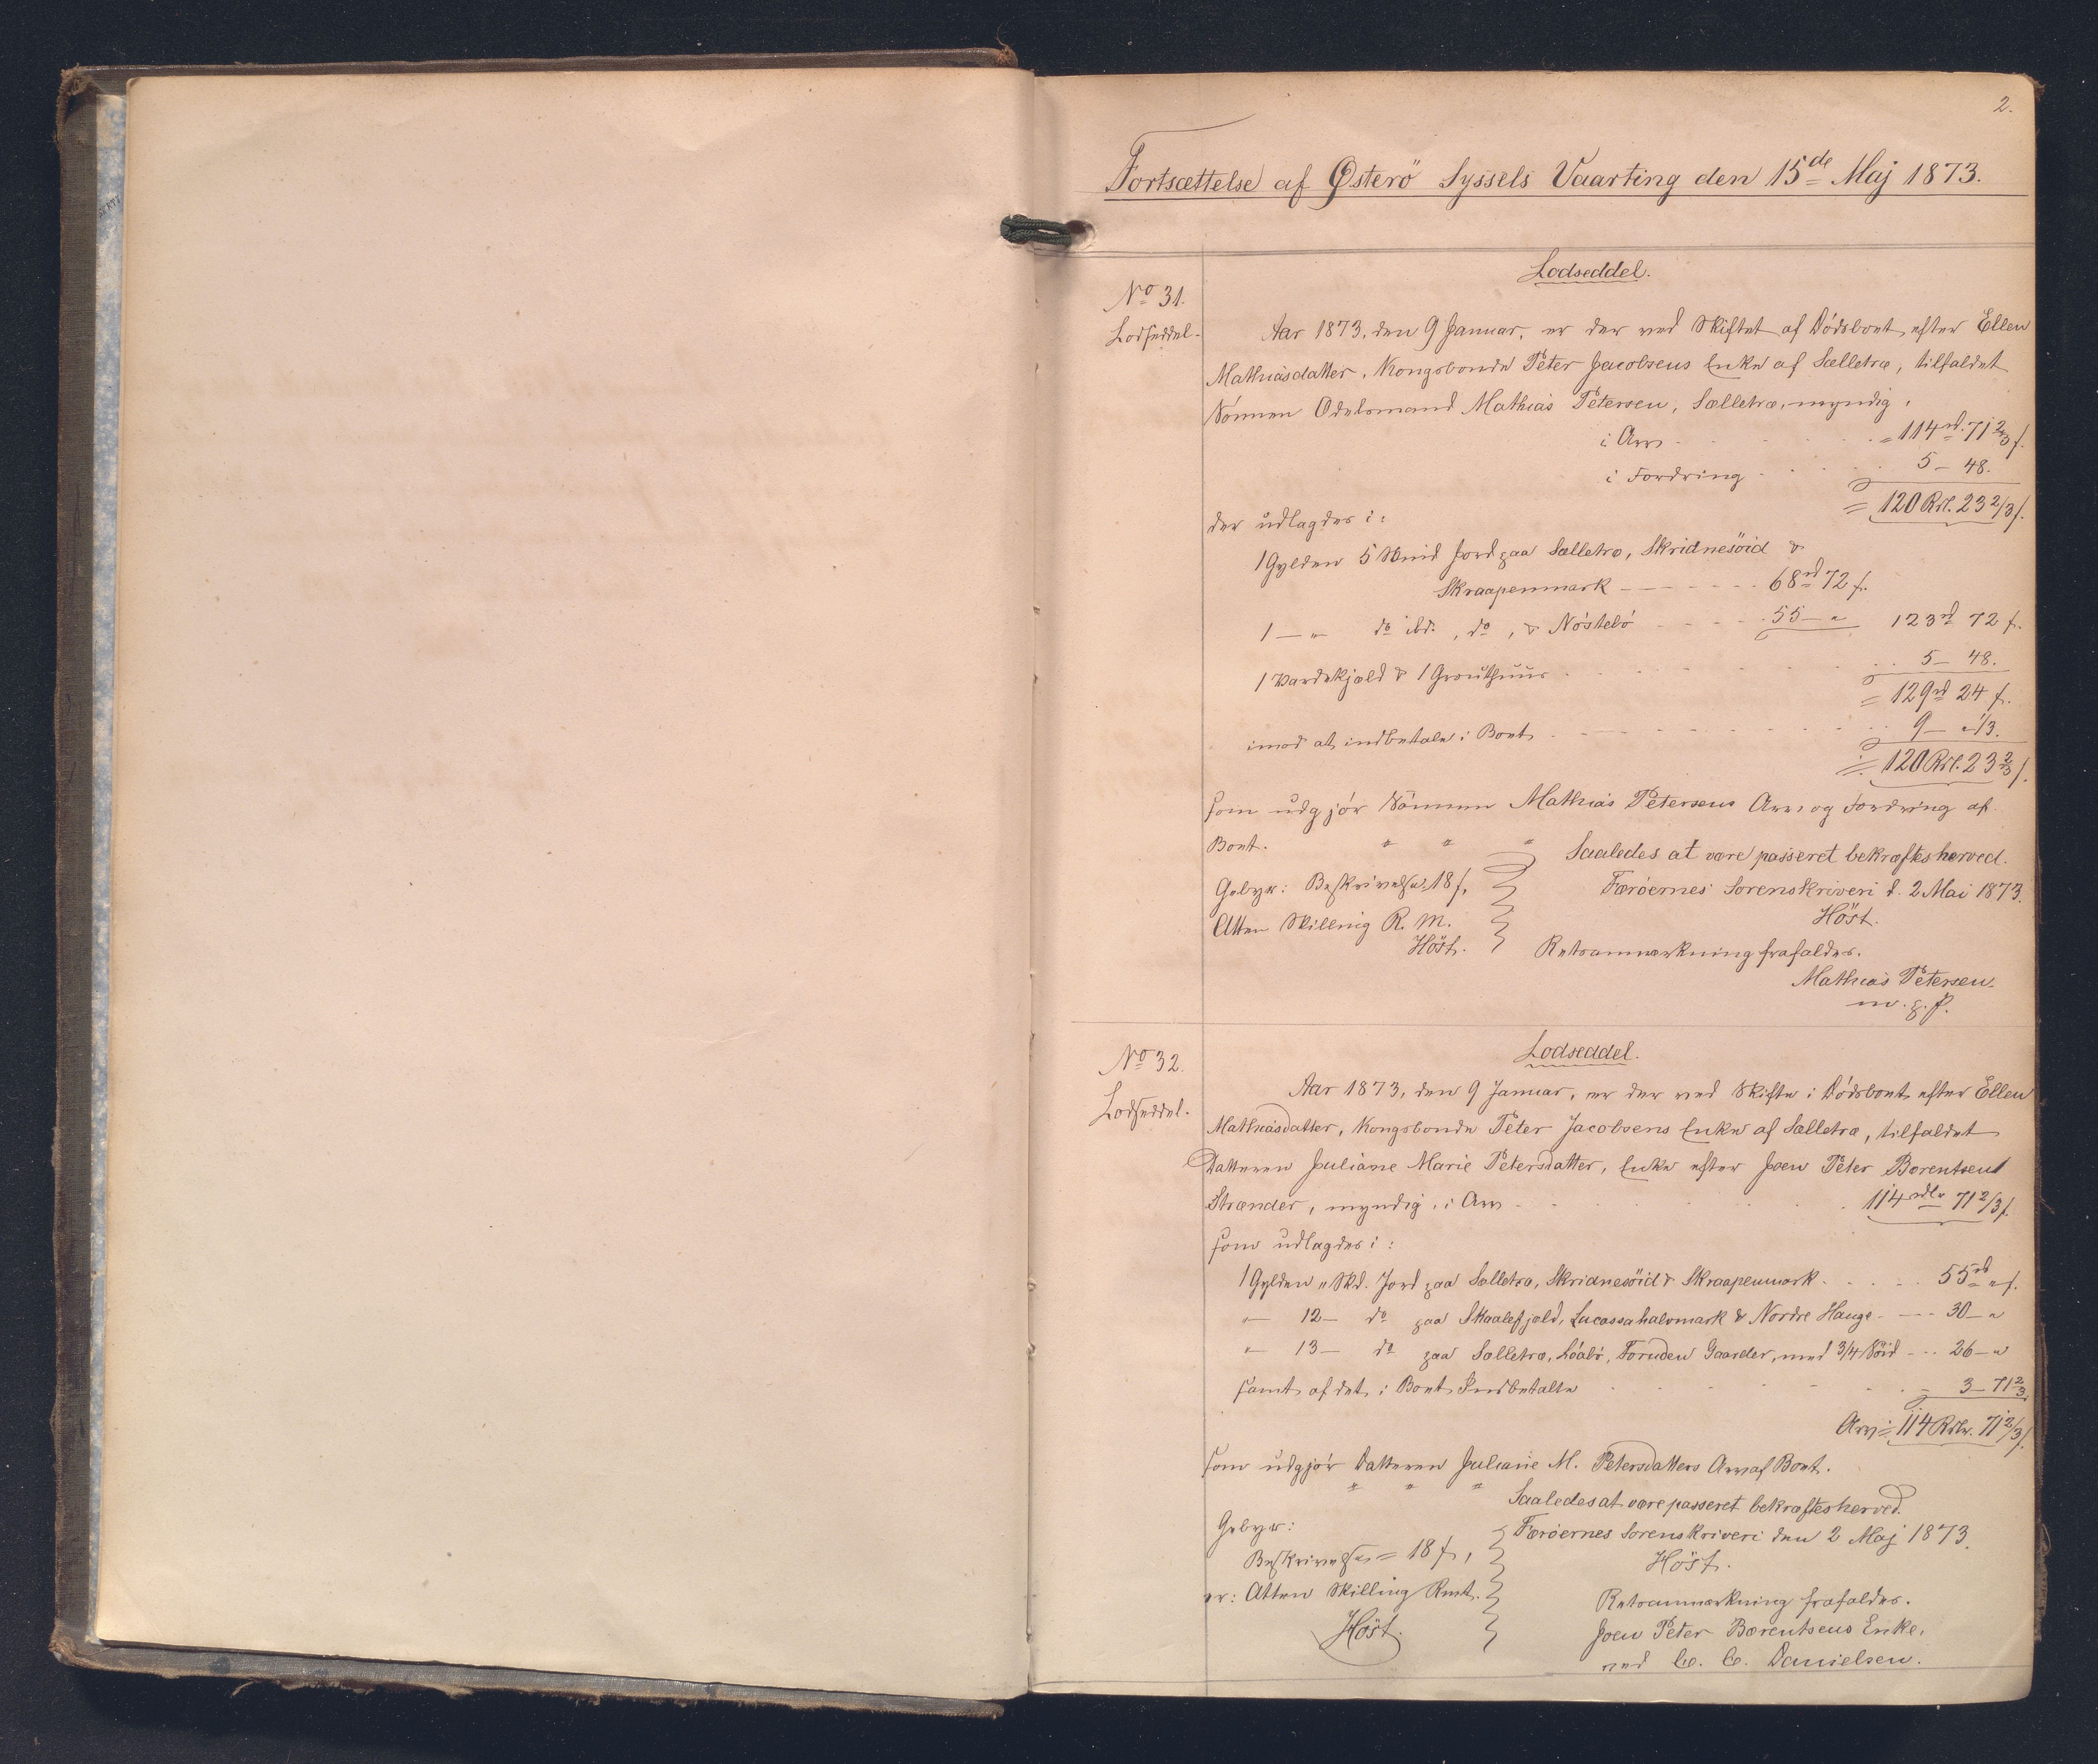 2.
Fortsættelse af Østerö Syssels Vaarting den 15de Maj 1873.
Lodseddel.
No 31.
Lodseddel.
Aar 1873, den 9 Januar, er der ved Skiftet af Dödsboet efter Ellen
Mathiasdatter, Kongsbonde Peter Jacobsens Enke af Sælletræ, tilfaldet
Sönnen Odelsmand Mathias Petersen, Sælletræ, myndig,
i Arv = 114rd. 71 2/3 s.
i Fordring 5 - 48.
= 120 Rd. 23 2/3 s.
der udlagdes i:
1 Gylden 5 Skind Jord paa Sælletræ, Skridnesöid &
Skraapenmark 68rd 72 s.
1 — " do ibd., do, & Nöstebö 55 — " 123rd 72 s.
1 Vardekjæld & 1 Grouthuus 5 — 48.
= 129rd 24 s.
imod at indbetale i Boet 9 — " 1/3.
= 120 Rd. 23 2/3 s.
som udgjör Sönnen Mathias Petersens Arv og Fordring af
Boet. " " "
Saaledes at være passeret bekræftes herved.
Gebyr: Beskrivelse 18 s,
Færöernes Sorenskriveri d. 2 Mai 1873.
Atten Skilling R. M.
Höst.
Höst.
Retsanmærkning frafaldes.
Mathias Petersen
m. g. P.
No 32.
Lodseddel.
Lodseddel.
Aar 1873, den 9 Januar, er der ved Skifte i Dödsboet efter Ellen
Mathiasdatter, Kongsbonde Peter Jacobsens Enke af Sælletræ, tilfaldet
Datteren Juliane Marie Petersdatter, Enke efter Joen Peter Borentsen
Strænder, myndig, i Arv 114 rdlr 71 2/3 s.
som udlagdes i:
1 Gylden " Skd. Jord paa Sælletræ, Skridnesöid & Skraapenmark 55rd " s.
" — 12 — do paa Skaalefjeld, Lucassahalvmark & Nordre Hauge 30 — "
" — 13 — do paa Sælletræ, Löabö, Foruden Gaarder, med 3/4 Söid 26 — "
samt af det i Boet Indbetalte 3 — 71 2/3
Arv = 114 Rdlr. 71 2/3 s.
som udgjör Datteren Juliane M. Petersdatters Arv af Boet.
" " "
Saaledes at være passeret bekræftes herved.
Gebyr:
Færöernes Sorenskriveri den 2 Maj 1873.
Beskrivelse = 18 s,
Höst.
er: Atten Skilling Rmt.
Retsanmærkning frafaldes.
Höst.
Joen Peter Bærentsens Enke,
ved C. C. Danielsen.